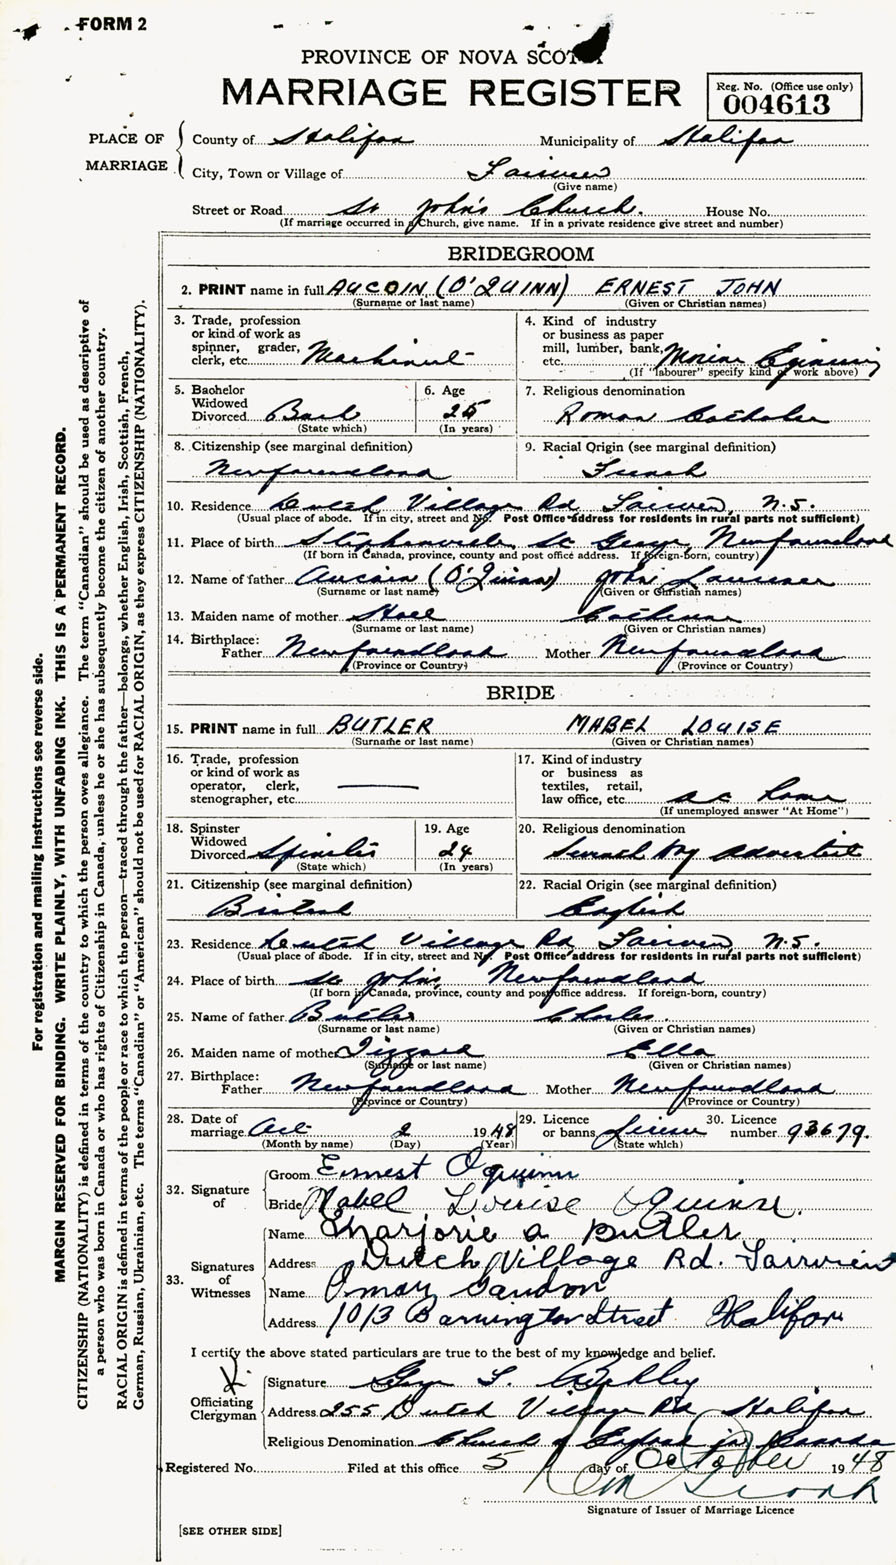 FORM 2
PROVINCE OF NOVA SCOTIA
MARRIAGE REGISTER
Reg. No. (Office use only)
004613
PLACE OF MARRIAGE
County of Halifax Municipality of Halifax
City, Town or Village of Fairview
(Give name)
Street or Road St John's Church. House No.
(If marriage occurred in a Church, give name. If in a private residence give street and number)
BRIDEGROOM
2. PRINT name in full AUCOIN (O'QUINN) ERNEST JOHN
(Surname or last name) (Given or Christian names)
3. Trade, profession or kind of work as spinner, grader, clerk, etc. Machinist
4. Kind of industry or business as paper mill, lumber, bank, etc. Marine
(If "labourer" specify kind of work above)
5. Bachelor Widowed Divorced Bach
(State which)
6. Age 25
(In years)
7. Religious denomination
Roman Catholic
8. Citizenship (see marginal definition)
Newfoundland
9. Racial Origin (see marginal definition)
French
10. Residence Dutch Village Rd Fairview, N.S.
(Usual place of abode. If in city, street and No. Post Office address for residents in rural parts not sufficient)
11. Place of birth Stephenville, St George, Newfoundland
(If born in Canada, province, county and post office address. If foreign-born, country)
12. Name of father Aucoin (O'Quinn) John
(Surname or last name) (Given or Christian names)
13. Maiden name of mother Catherine
(Surname or last name) (Given or Christian names)
14. Birthplace:
Father Newfoundland Mother Newfoundland
(Province or Country) (Province or Country)
BRIDE
15. PRINT name in full BUTLER MABEL LOUISE
(Surname or last name) (Given or Christian names)
16. Trade, profession or kind of work as operator, clerk, stenographer, etc.
17. Kind of industry or business as textiles, retail, law office, etc. at home
(If unemployed answer "At Home")
18. Spinster Widowed Divorced Spinster
(State which)
19. Age 24
(In years)
20. Religious denomination
Seventh Day Adventist
21. Citizenship (see marginal definition)
British
22. Racial Origin (see marginal definition)
English
23. Residence Dutch Village Rd Fairview N.S.
(Usual place of abode. If in city, street and No. Post Office address for residents in rural parts not sufficient)
24. Place of birth St John's, Newfoundland
(If born in Canada, province, county and post office address. If foreign-born, country)
25. Name of father Butler Charles.
(Surname or last name) (Given or Christian names)
26. Maiden name of mother Tizzard Ella
(Surname or last name) (Given or Christian names)
27. Birthplace:
Father Newfoundland Mother Newfoundland
(Province or Country) (Province or Country)
28. Date of marriage Oct 2 1948
(Month by name) (Day) (Year)
29. Licence or banns License
(State which)
30. Licence number 93679.
32. Signature of
Groom Ernest O'Quinn
Bride Mabel Louise O'Quinn.
33. Signatures of Witnesses
Name Marjorie A Butler
Address Dutch Village Rd. Fairview
Name Omar
Address 1013 Barrington Street Halifax
I certify the above stated particulars are true to the best of my knowledge and belief.
Officiating Clergyman
Signature
Address 255 Dutch Village Rd Halifax
Religious Denomination Church of England in Canada
Registered No. Filed at this office 5 day of October 1948
Signature of Issuer of Marriage Licence
[SEE OTHER SIDE]
For registration and mailing instructions see reverse side.
MARGIN RESERVED FOR BINDING. WRITE PLAINLY, WITH UNFADING INK. THIS IS A PERMANENT RECORD.
CITIZENSHIP (NATIONALITY) is defined in terms of the country to which the person owes allegiance. The term "Canadian" should be used as descriptive of
a person who was born in Canada or who has rights of Citizenship in Canada, unless he or she has subsequently become the citizen of another country.
RACIAL ORIGIN is defined in terms of the people or race to which the person—traced through the father—belongs, whether English, Irish, Scottish, French,
German, Russian, Ukrainian, etc. The terms "Canadian" or "American" should not be used for RACIAL ORIGIN, as they express CITIZENSHIP (NATIONALITY).